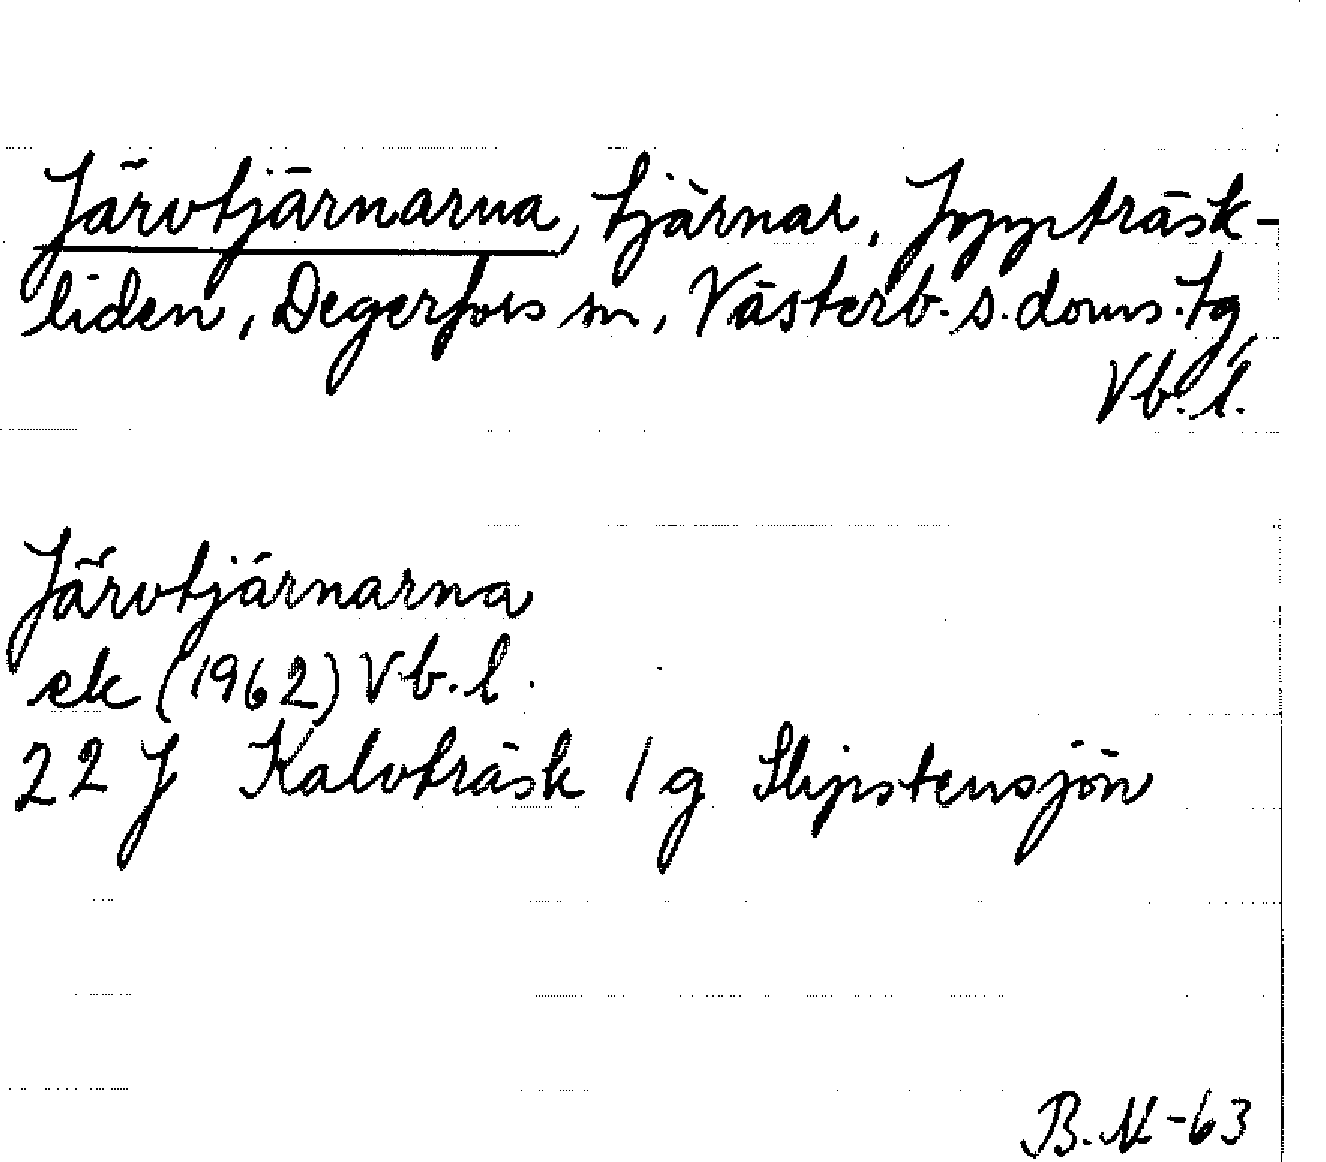 Järvtjärnarna, tjärnar, Joppträsk-
liden, Degerfors sn, Västerb. s. doms. tg
Vb. l.
Järvtjärnarna
ek (1962) Vb. l.
22 J Kalvträsk 1 g Slipstensjön
B. N -63